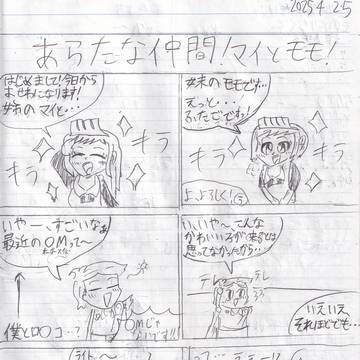 2025 4.25
あらたな仲間!マイとモモ!
はじめまして!今日から
おせわになります!
姉のマイと・・・
キラ
キラ
妹のモモです・・
えっと・・・
ふたごです!
キラ
キラ
よ、よろしく!
いやー、すごいなぁ
最近のOMって〜
僕とロコ・・・?
OMじゃ
ないです!!
いいや〜、こんな
かわいい子が来るとは
思ってなかったから・・
テレ
テレ
いえいえ
それほどでも・・